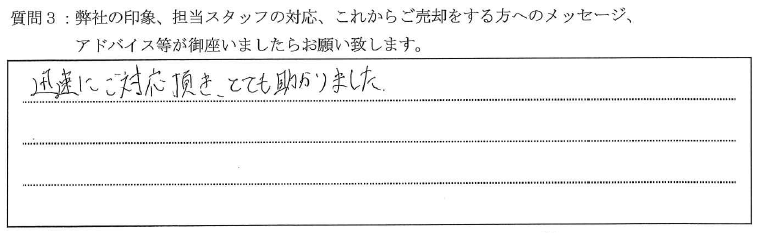 質問３：弊社の印象、担当スタッフの対応、これからご売却をする方へのメッセージ、
アドバイス等が御座いましたらお願い致します。
迅速にご対応頂き、とても助かりました